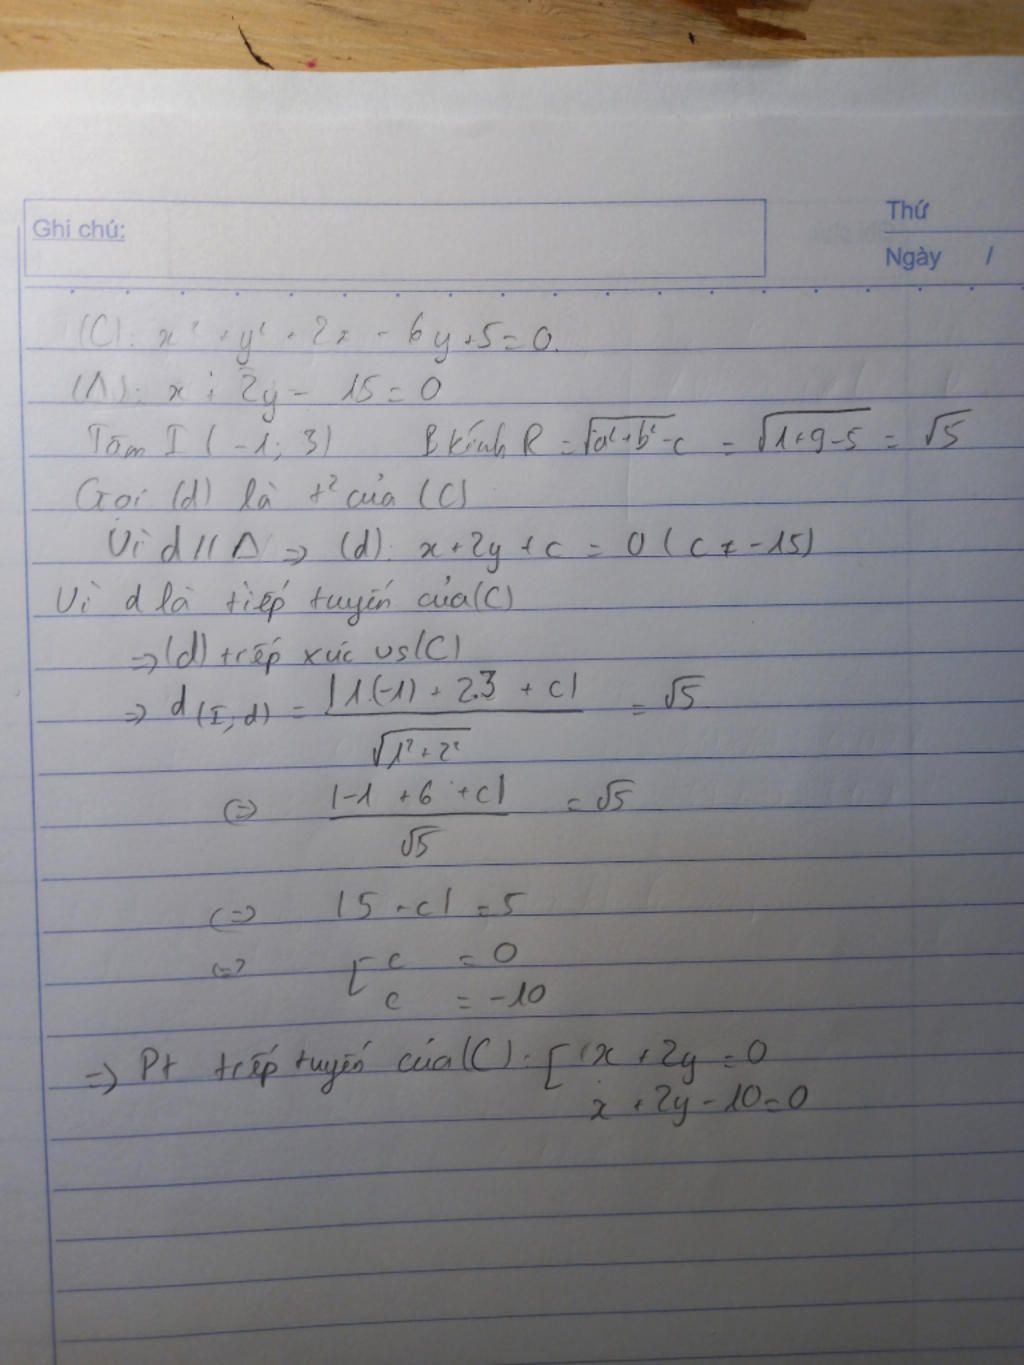 Ghi chú:
Thứ
Ngày /
(C): x² + y² + 2x - 6y + 5 = 0.
(Δ): x + 2y - 15 = 0
Tâm I (-1; 3) B kính R = √a²+b²-c = √1+9-5 = √5
Gọi (d) là t² của (C)
Vì d // Δ => (d): x + 2y + c = 0 (c ≠ -15)
Vì d là tiếp tuyến của (C)
=> (d) tiếp xúc vs (C)
=> d(I; d) = |1.(-1) + 2.3 + c| / √1² + 2² = √5
<=> |-1 + 6 + c| / √5 = √5
<=> |5 + c| = 5
<=> [ c = 0
c = -10
=> Pt tiếp tuyến của (C): [ x + 2y = 0
x + 2y - 10 = 0